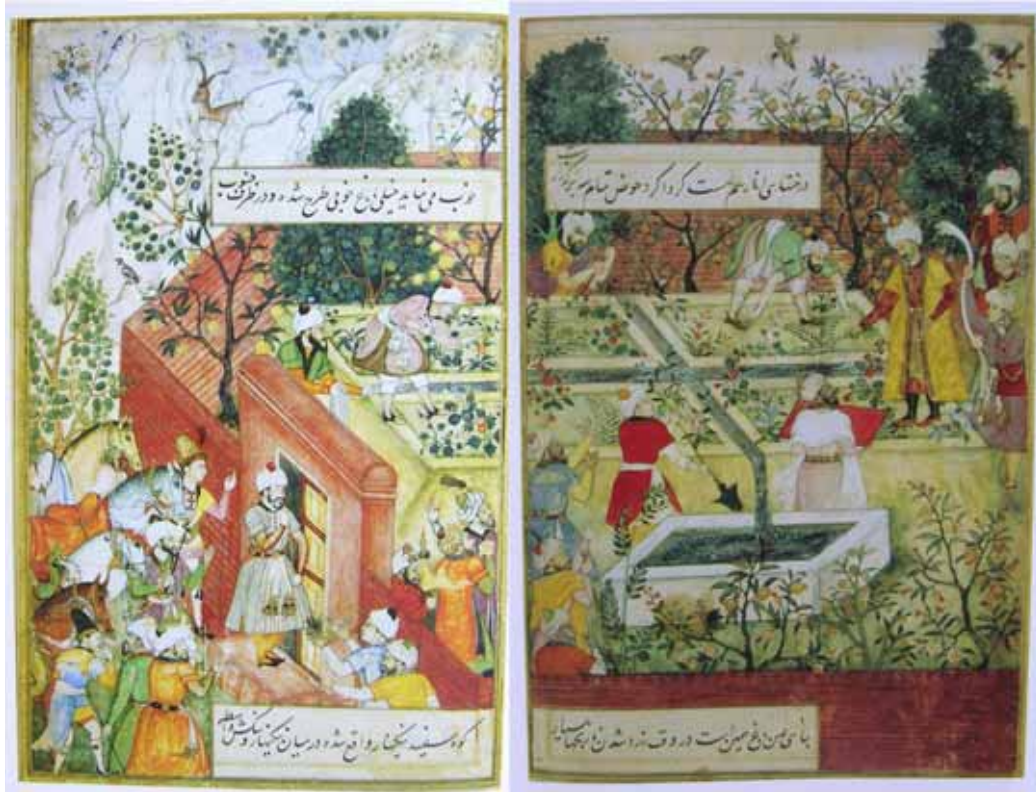 درختهای نارنج هست گرداگرد حوض تمام سه برگه زار
جای عین باغ همین است در وقت زرد شدن نارنجها بسیار
خوب می نماید خیلی باغ خوبی طرح شده و در طرف جنوب
کوه سفید ننگنهار واقع شده درمیان ننگنهار و بنگش واسطه